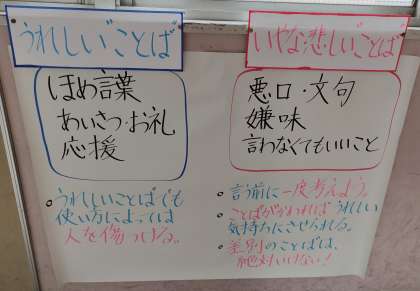 うれしいことば
ほめ言葉
あいさつ・お礼
応援
うれしいことばでも
使い方によっては
人を傷つける。
いやな悲しいことば
悪口・文句
嫌味
言わなくてもいいこと
言う前に一度考えよう。
ことばがかわればうれしい
気持ちにさせられる。
差別のことばは、
絶対いけない!